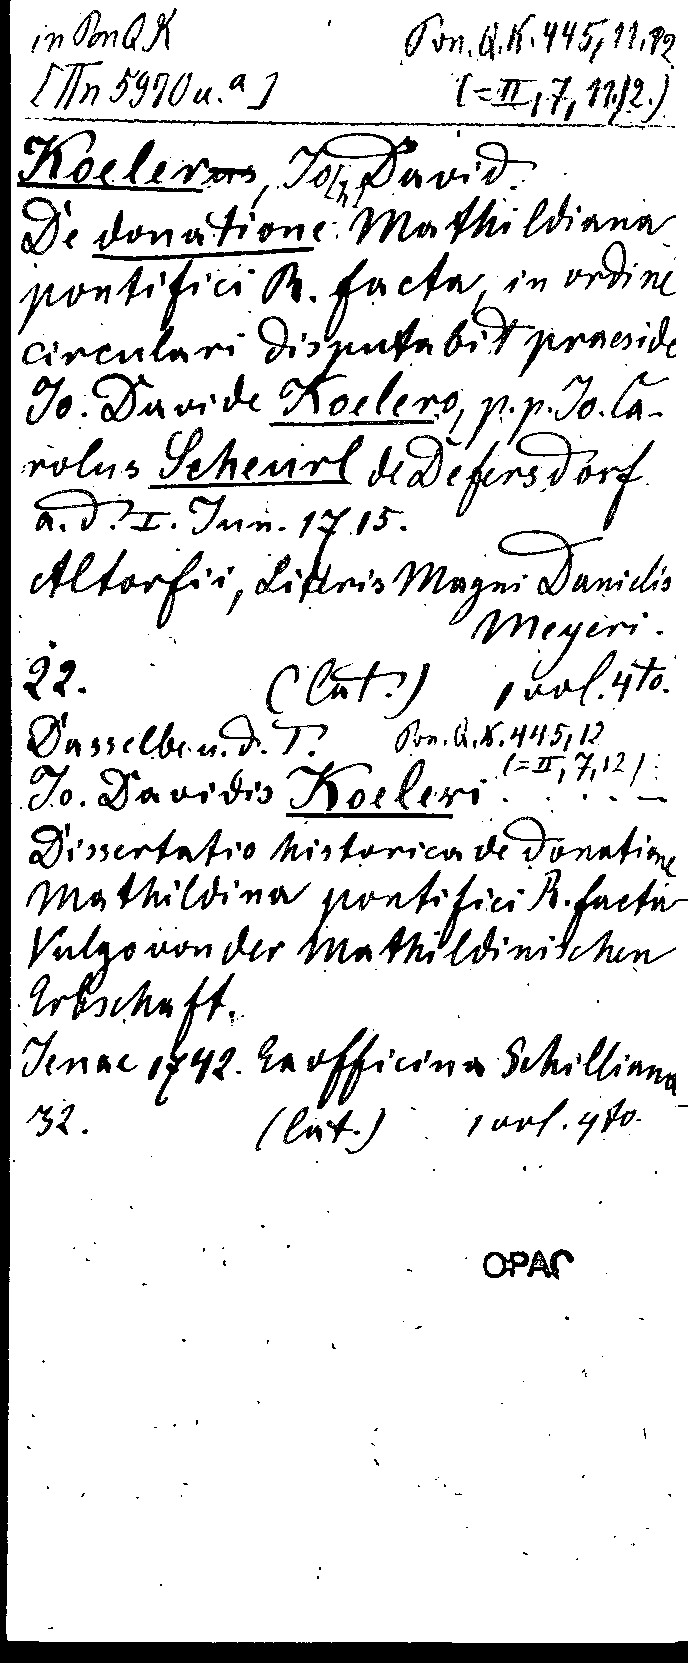 in Pon Q K Pon. Q. K. 445, 11.12
[IIn 5970 u. a] (= II, 7, 11/2.)
Koelerus, Jo[h] David.
De donatione Mathildiana
pontifici R. facta, in ordine
circulari disputabit praeside
Jo. Davide Koelero, p.p. Jo. Ca-
rolus Scheurl de Defersdorf
a. d. I. Jun. 1715.
Altorfii, Literis Magni Danielis
Meyeri.
22. (lat.) 1 vol. 4to.
Dasselbe u. d. T. Pon. Q. K. 445, 12
(= II, 7, 12)
Jo. Davidis Koeleri . . . . –
Dissertatio historica de donatione
Mathildina pontifici R. facta
Vulgo von der Mathildinischen
Erbschaft.
Jenae 1742. Ex officina Schilliana
32. (lat.) 1 vol. 4to.
OPAC